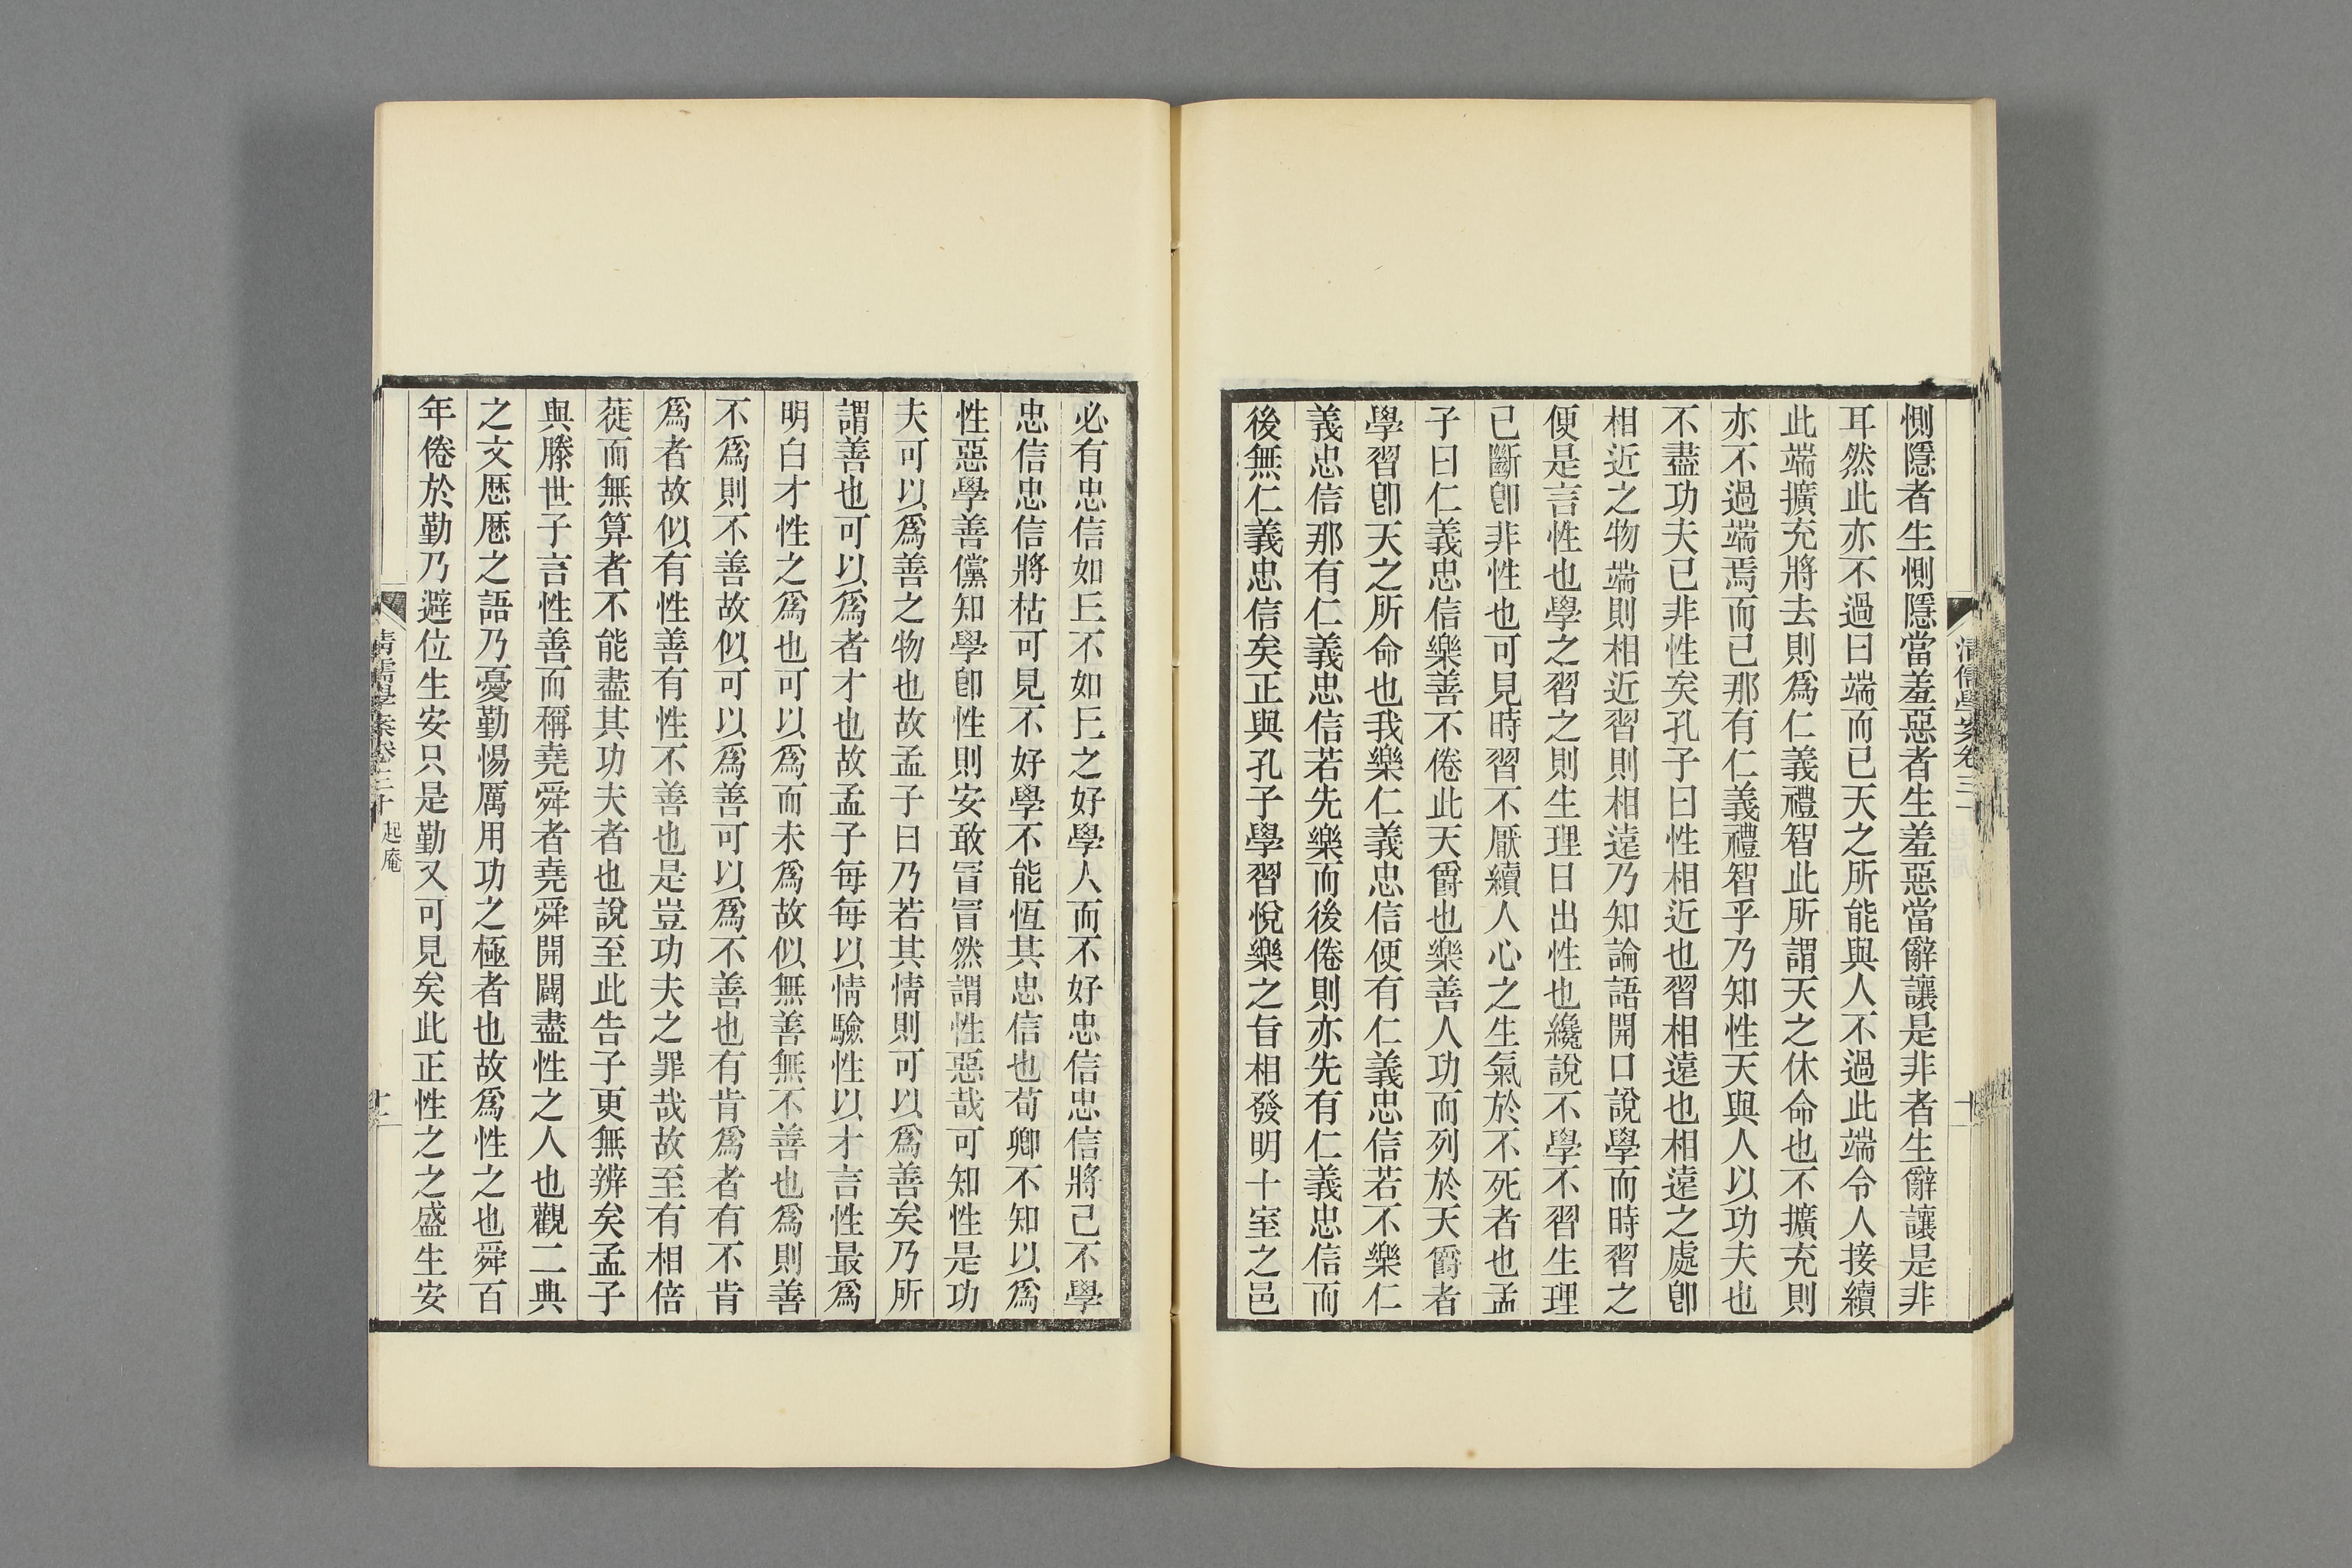 惻隱者生惻隱當羞惡者生羞惡當辭讓是非者生辭讓是非
耳然此亦不過曰端而已天之所能與人不過此端令人接續
此端擴充將去則爲仁義禮智此所謂天之休命也不擴充則
亦不過端焉而已那有仁義禮智乎乃知性天與人以功夫也
不盡功夫已非性矣孔子曰性相近也習相遠也相遠之處卽
相近之物端則相近習則相遠乃知論語開口說學而時習之
便是言性也學之習之則生理日出性也纔說不學不習生理
已斷卽非性也可見時習不厭續人心之生氣於不死者也孟
子曰仁義忠信樂善不倦此天爵也樂善人功而列於天爵者
學習卽天之所命也我樂仁義忠信便有仁義忠信若不樂仁
義忠信那有仁義忠信若先樂而後倦則亦先有仁義忠信而
後無仁義忠信矣正與孔子學習悅樂之旨相發明十室之邑
清儒學案卷三十
十
必有忠信如丘不如丘之好學人而不好忠信忠信將已不學
忠信忠信將枯可見不好學不能恆其忠信也荀卿不知以爲
性惡學善儻知學卽性則安敢冒冒然謂性惡哉可知性是功
夫可以爲善之物也故孟子曰乃若其情則可以爲善矣乃所
謂善也可以爲者才也故孟子每每以情驗性以才言性最爲
明白才性之爲也可以爲而未爲故似無善無不善也爲則善
不爲則不善故似可以爲善可以爲不善也有肯爲者有不肯
爲者故似有性善有性不善也是豈功夫之罪哉故至有相倍
蓰而無算者不能盡其功夫者也說至此告子更無辨矣孟子
與滕世子言性善而稱堯舜者堯舜開闢盡性之人也觀二典
之文歴歴之語乃憂勤惕厲用功之極者也故爲性之也舜百
年倦於勤乃避位生安只是勤又可見矣此正性之之盛生安
清儒學案卷三十 起庵
十一